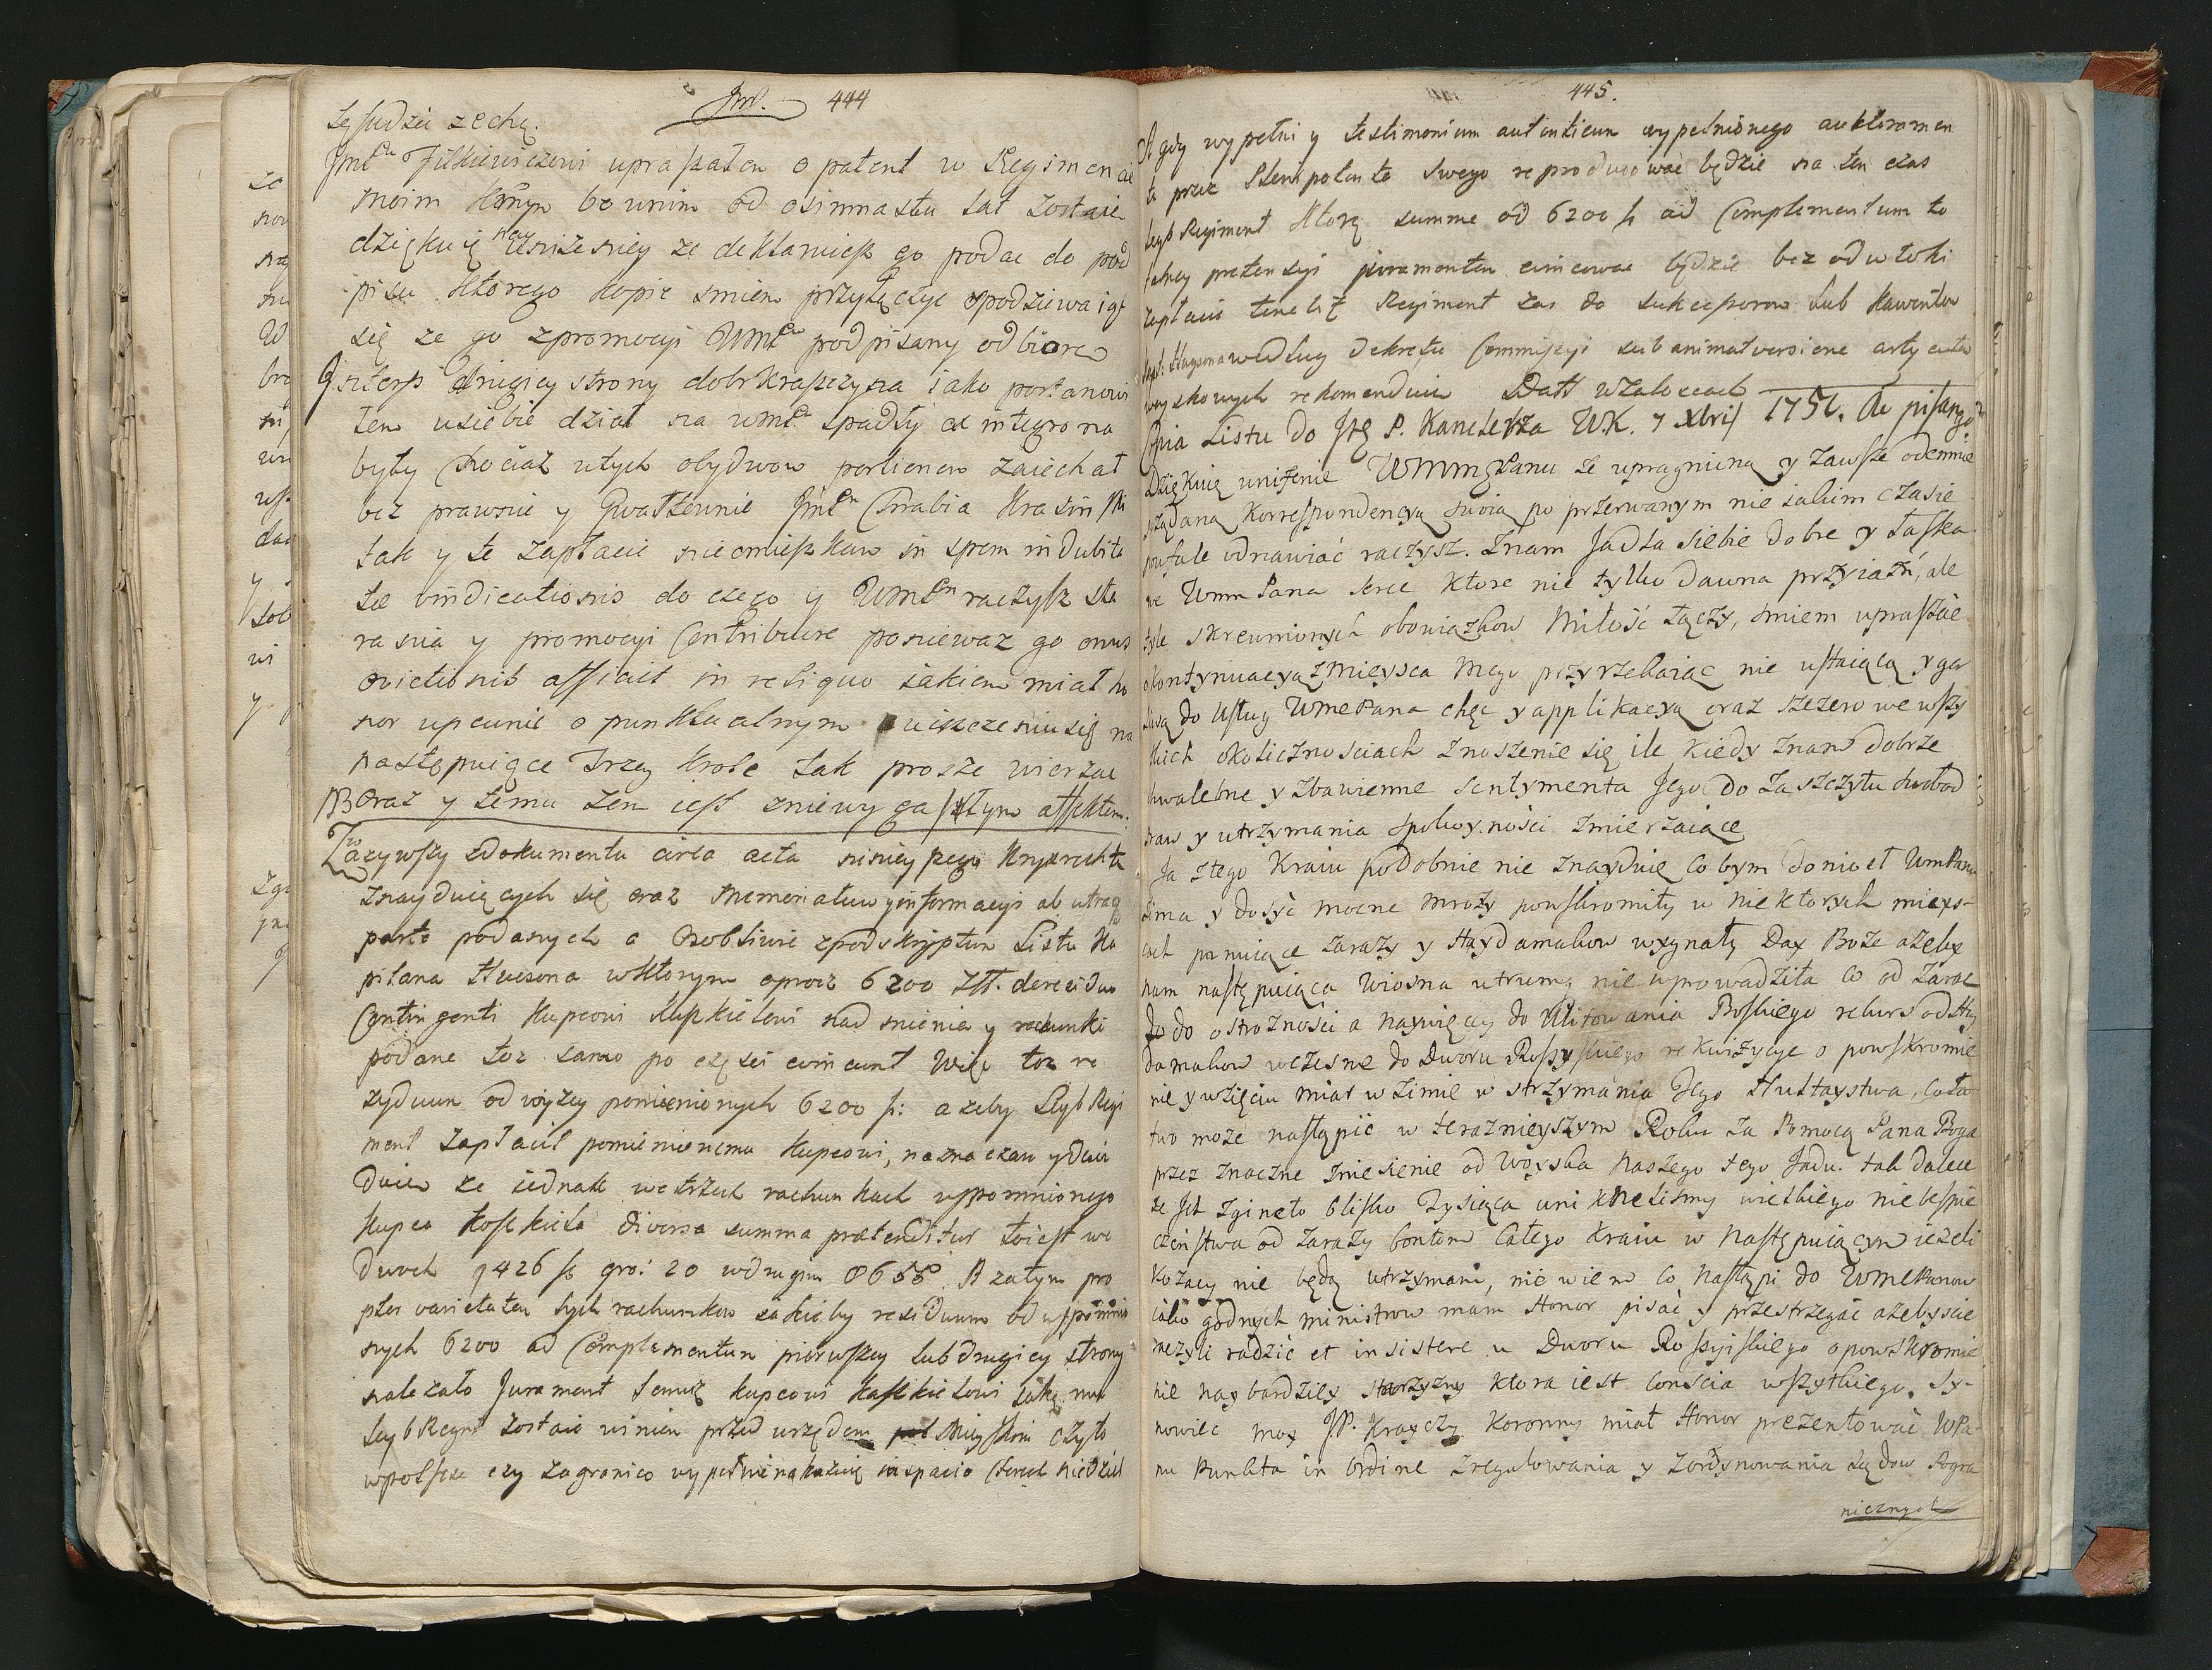 444
Leg sudzu zechę.
Jmć Pu upraszałem o patent w Regimencie
moim bo unim od osimnastu lat zostaie
dziękuię naj uniżeniey ze deklaruiesz go podac do pod
pisu ktorego kopie smiem przyłęczyc spodziewaiąc
się ze go zpromocyi WmćPu podpisany odbiore
drugiey strony dobr Kraszczyna iako postanowi
łem usiebie dział na wmć Pa spadły ex integro na
były chociaż utych obydwow zaiechał
bez prawnie y Gwałtownie JmćPn Chrabia Krasinski
tak y te zapłacic niemieszkam in spem indubita
tae vindicationis do czego y WmćPn raczysz sta
rania y promocyi Contribuere poniewaz go onus
evictionis afficit in reliquo iakiem miał ho
nor upewnic o punktualnym uiszczeniu się na
następuiące Trzey Krole tak prosze wierzac
Oraz y temu zem iest zniewygasłym affektem.
Zazywszy zdokumentu circa acta ninieyszego Krygsrechtu
znayduiących się oraz Memoriałuw y informacyi ab utraq
parte podanych a osobliwie zpodskryptum Listu Ka
pitana Hucsona wktorym oprocz 6200 Złł. de residuo
Contingenti Kupcowi nad mienia y rachunki
podane toz samo po części evincunt Więc toz re
zyduum od wyzey pomienionych 6200 f: azeby Leyb Regi
ment Zapłacił pomienionemu Kupcowi, naznaczam y
duie ze iednak wetrzech rachunkach wspomnionego
Kupca Koszkiela diversa summa praetenditur toiest we
dwoch 9426 f gro: 20 wdrugim 8658 A zatym pro
pter varietatem tych rachunkow iakieby residuum od wspomnio
nych 6200 ad Complementum pierwszey lub drugiey strony
nalezało Jurament temuz kupcowi Koszkielowi iako mu
Leyb Regmt zostaie winien przed urzędem Mieyskim czyto
wpolszcze czy zagranico wypełnic nakazuię in spacio czterech niedziel
445.
A gdy wypełni y testimonium autenticum wypełnionego iuramen
tu przez Plenipotenta swego reprodukować będzie na ten czas
Leyb Regiment ktorą summe od 6200 f ad Complementum to
talney pretensyi juramentem evincować będzie bez odwłoki
zapłacic tenebit Regiment zas do sukcessorow lub Kawentow
według dekretu Commissyi sub animatversione artykułow
woyskowych rekomenduie Datt wZałoscach
Copia Listu do Jeg P. Kanclerza W.K. 7 Xbris 1751. Ao pisanego
Dziękuię uniżenie WmmgPanu ze upragnioną y zawsze odemnie
ządaną Korrespondencyą swoią po przerwanym nie iakim czasie
poufale odnawiać raczysz. Znam Ja dla siebie dobre y łaska
we WmmPana serce ktore nie tylko dawna przyiazń, ale
tyle skrewnionych obowiązkow Miłość łączy, smiem upraszac
okontynuacyą zmieysca mego przyrzekaiąc nie ustaiącą y go
liwą do usług WmcPana chęc y applikacyą oraz szczero we wszy
tkich okolicznosciach znoszenie się ile kiedy znam dobrze
chwalebne y zbawienne sentymenta Jego do zaszczytu swobod
praw y utrzymania spokoyności zmierzaiące
Ja ztego Kraiu podobnie nie znayduię co bym doniosł WmPanu
Zima y dosyć mocne mrozy powskromiły w niektorych mieys-
cach panuiące zarazy y Haydamakow wygnały Day Boze azeby
nam następuiąca Wiosna utrumq nie wprowadziła co od zaraz
to do ostrożności a naywięcy do Ulitowania Boskiego rekurs od Hay
damakow wczesne do Dworu Rossyiskiego rekwizycye o powskromie
nie y wzięciu miar w Zimie wstrzymania Jego Hultaystwa, co ła
two może nastąpić w teraznieyszym Roku za Pomocą Pana Boga
przez znaczne zniesienie od Woyska naszego tego Jadu. tak dalece
ze Jch zgineło blisko Tysiąca uniknelismy wielkiego niebespie
czenstwa od zarazy bontow całego Kraiu w następuiącym ieżeli
Kozacy nie będą utrzymani, nie wiem co nastąpi do WmcPanow
iako godnych ministrow mam Honor pisać y przestrzegać azebyscie
mezyli radzić et insistere u Dworu Rossyiskiego opowskromie
nie naybardziey starzyzny ktora iest conscia wszytkiego. Sy-
nowiec moy JP. Krayczy Koronny miał Honor prezentować WPa-
nu Punkta in ordine zregulowania y zordynowania sądow Pogra
nicznych